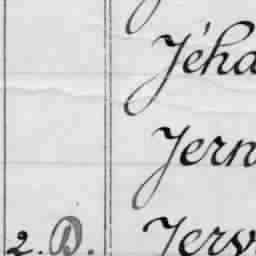 Jéha
Jern
2. D. Jerv